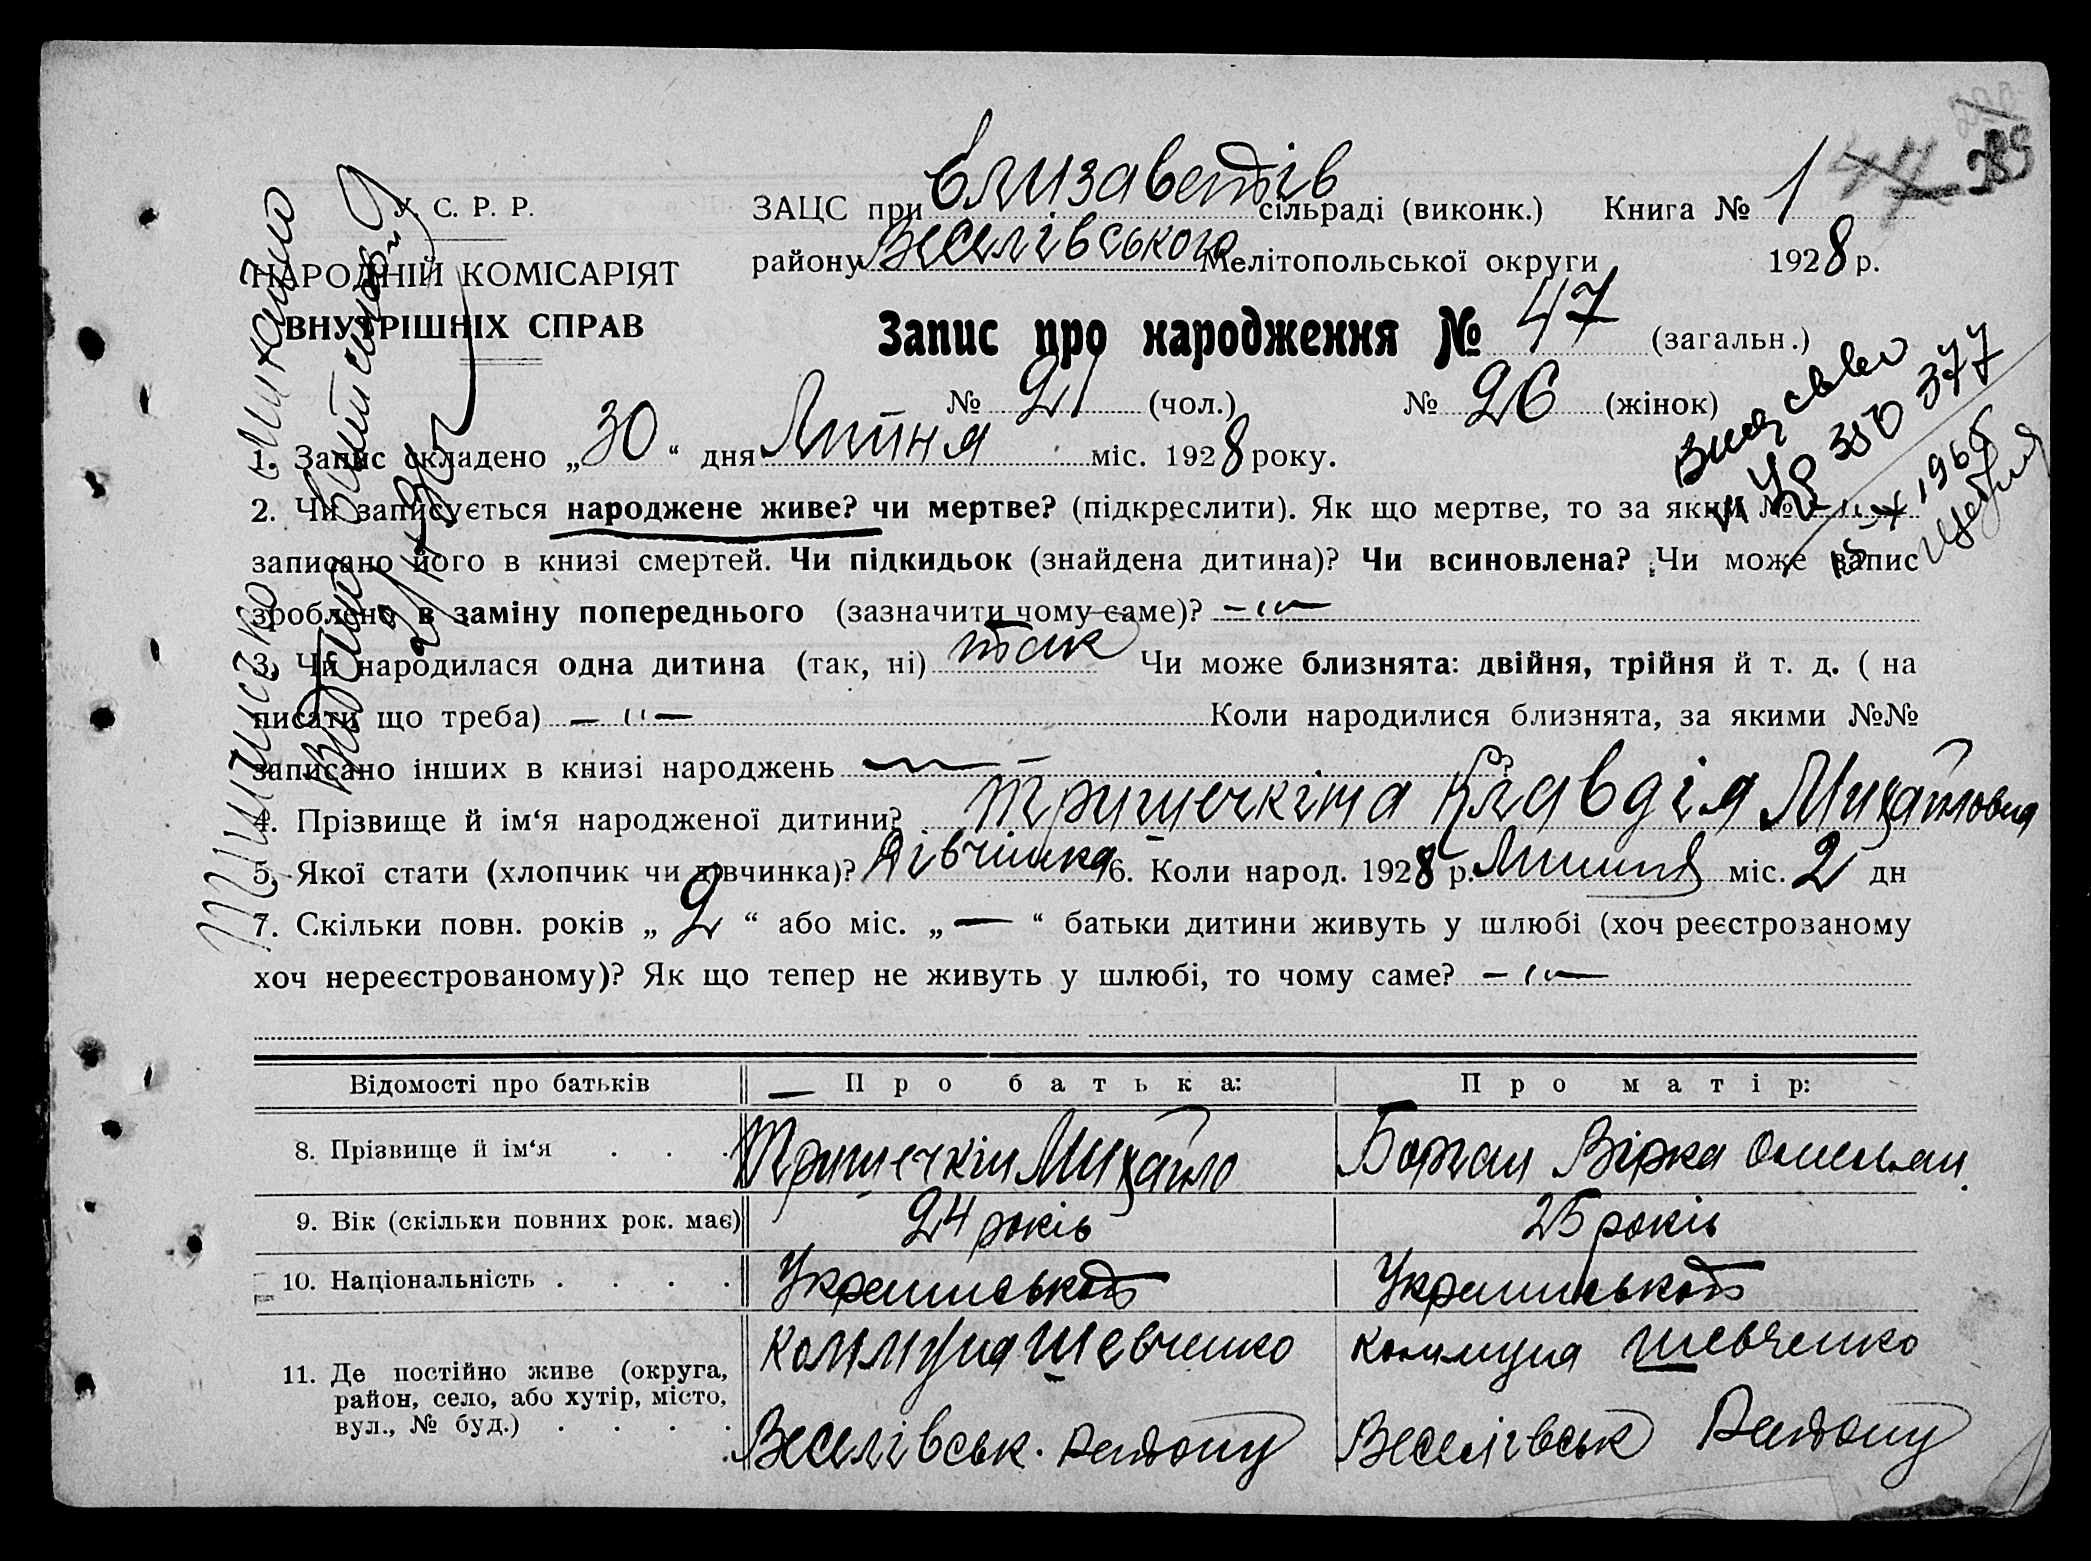 У. С. Р. Р.
НАРОДНІЙ КОМІСАРІЯТ
ВНУТРІШНІХ СПРАВ
ЗАЦС при Єлизаветів сільраді (виконк.) Книга № 1
району Веселівського Мелітопольської округи 1928 р.
Запис про народження № 47 (загальн.)
№ 21 (чол.) № 26 (жінок)
1. Запис складено „30“ дня Липня міс. 1928 року.
2. Чи записується народжене живе? чи мертве? (підкреслити). Як що мертве, то за яким № - " -
записано його в книзі смертей. Чи підкидьок (знайдена дитина)? Чи всиновлена? Чи може запис
зроблено в заміну попереднього (зазначити чому саме)? - " -
3. Чи народилася одна дитина (так, ні) так Чи може близнята: двійня, трійня й т. д. ( на
писати що треба) - " - Коли народилися близнята, за якими №№
записано інших в книзі народжень — ?
4. Прізвище й ім‘я народженої дитини? Тришечкіна Клавдія Михайловна
5. Якої стати (хлопчик чи дівчинка)? Дівчинка 6. Коли народ. 1928 р. Липня міс. 2 дн
7. Скільки повн. років „ 2 “ або міс. „ — “ батьки дитини живуть у шлюбі (хоч реєстрованому
хоч нереєстрованому)? Як що тепер не живуть у шлюбі, то чому саме? - " -
Відомості про батьків Про батька: Про матір:
8. Прізвище й ім‘я . . . Тришечкін Михайло Боган Вірка
9. Вік (скільки повних рок. має) 24 років 25 років
10. Національність . . . . Українською Українською
11. Де постійно живе (округа, район, село, або хутір, місто, вул., № буд.) . . . . коммуна Шевченко коммуна Шевченко
Веселівськ. Району Веселівськ Району
Михайло
350377
1965
285